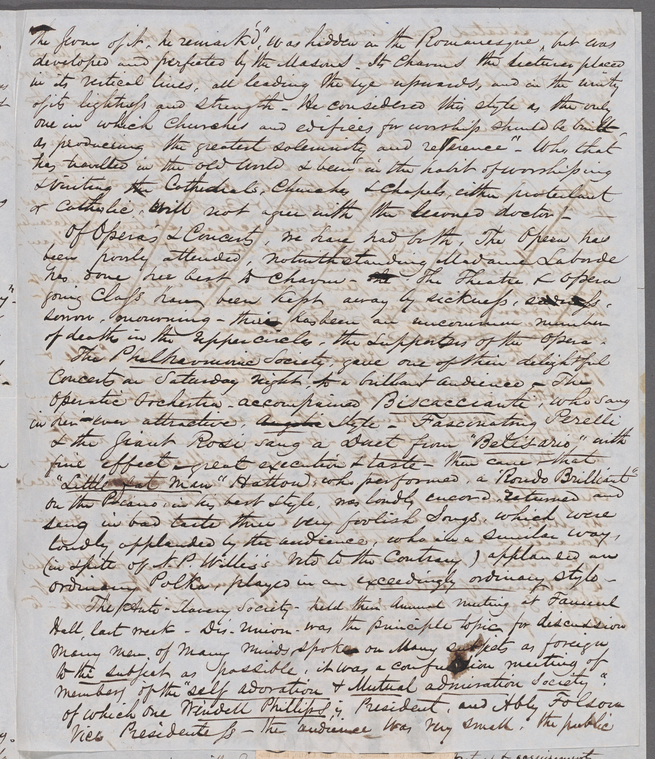 The germ of it, he remark'd, "was hidden in the Romanesque, but was
developed and perfected by the Masons - Its charms the lecturer placed
in its vertical lines, all leading the eye upwards, and in the unity
of its lightness and strength - He considered this style as the only
one in which Churches and edifices for worship should be built,
as producing the greatest solemnity and reverence" - Who that
has travelled in the old World & been in the habit of worshipping
& visiting the Cathedrals, Churches & Chapels either protestant
or catholic, will not agree with the learned doctor -
Of Operas & Concerts, we have had both, The Opera has
been poorly attended, notwithstanding Madame Laborde
has done her best to charm - The Theatre & Opera
going class have been kept away by sickness,
sorrow, mourning - there has been an uncommon number
of deaths in the upper circles, the supporters of the Opera.
The Philharmonic Society, gave one of their delightful
Concerts on Saturday night to a brilliant audience - The
Operatic Orchestra - accompanied Biscacciante, who sang
in her ever attractive, style - Fascinating Perelli
& the Giant Rosi sang a Duet from "Belisario" with
fine effect - great execution & taste - then came that
"Little fat man" Hatton, who performed a "Rondo Brilliant"
on the Piano, in his best style, was loudly encored returned and
sung in bad taste three very foolish songs, which were
loudly applauded by the audience, who in a similar way,
(in spite of N. P. Willis's veto to the Contrary) applauded an
ordinary Polka, played in an exceedingly ordinary style -
The Anti-Slavery Society - held their Annual meeting at Faneuil
Hall, last week - Dis-Union - was the principle topic for discussion
many men of many minds, spoke on Many subjects as foreign
to the subject as possible, it was a confusion meeting of
members of the "self adoration & Mutual admiration Society",
of which one Wendell Phillips is President, and Abby Folsom
Vice Presidentess - the audience was very small, the public